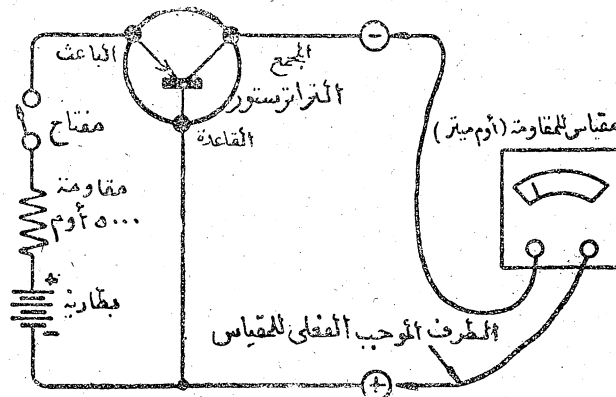 الباعث
المجمع
الترانزستور
القاعدة
مفتاح
مقاومة
٥٠٠٠ أوم
بطارية
+
−
−
مقياس للمقاومة (أوم ميتر)
الطرف الموجب الفعلى للمقياس
+